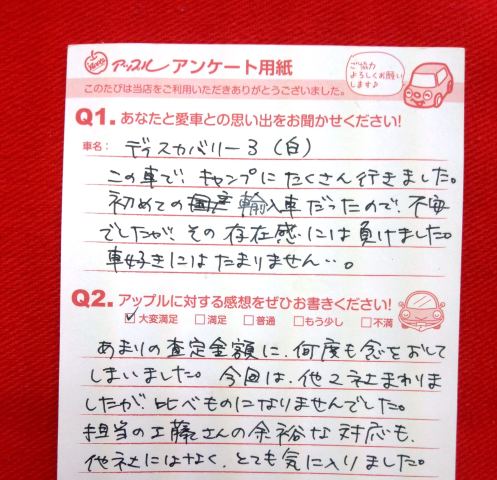 アップル アンケート用紙
ご協力
よろしくお願い
します♪
このたびは当店をご利用いただきありがとうございました。
Q1. あなたと愛車との思い出をお聞かせください!
車名: ディスカバリー3 (白)
この車で、キャンプにたくさん行きました。
初めての輸入車だったので、不安
でしたが、その存在感には負けました。
車好きにはたまりません…。
Q2. アップルに対する感想をぜひお書きください!
☑大変満足 □満足 □普通 □もう少し □不満
あまりの査定金額に、何度も念をおして
しまいました。今回は、他2社まわりま
したが、比べものになりませんでした。
担当の工藤さんの余裕な対応も、
他社にはなく、とても気に入りました。